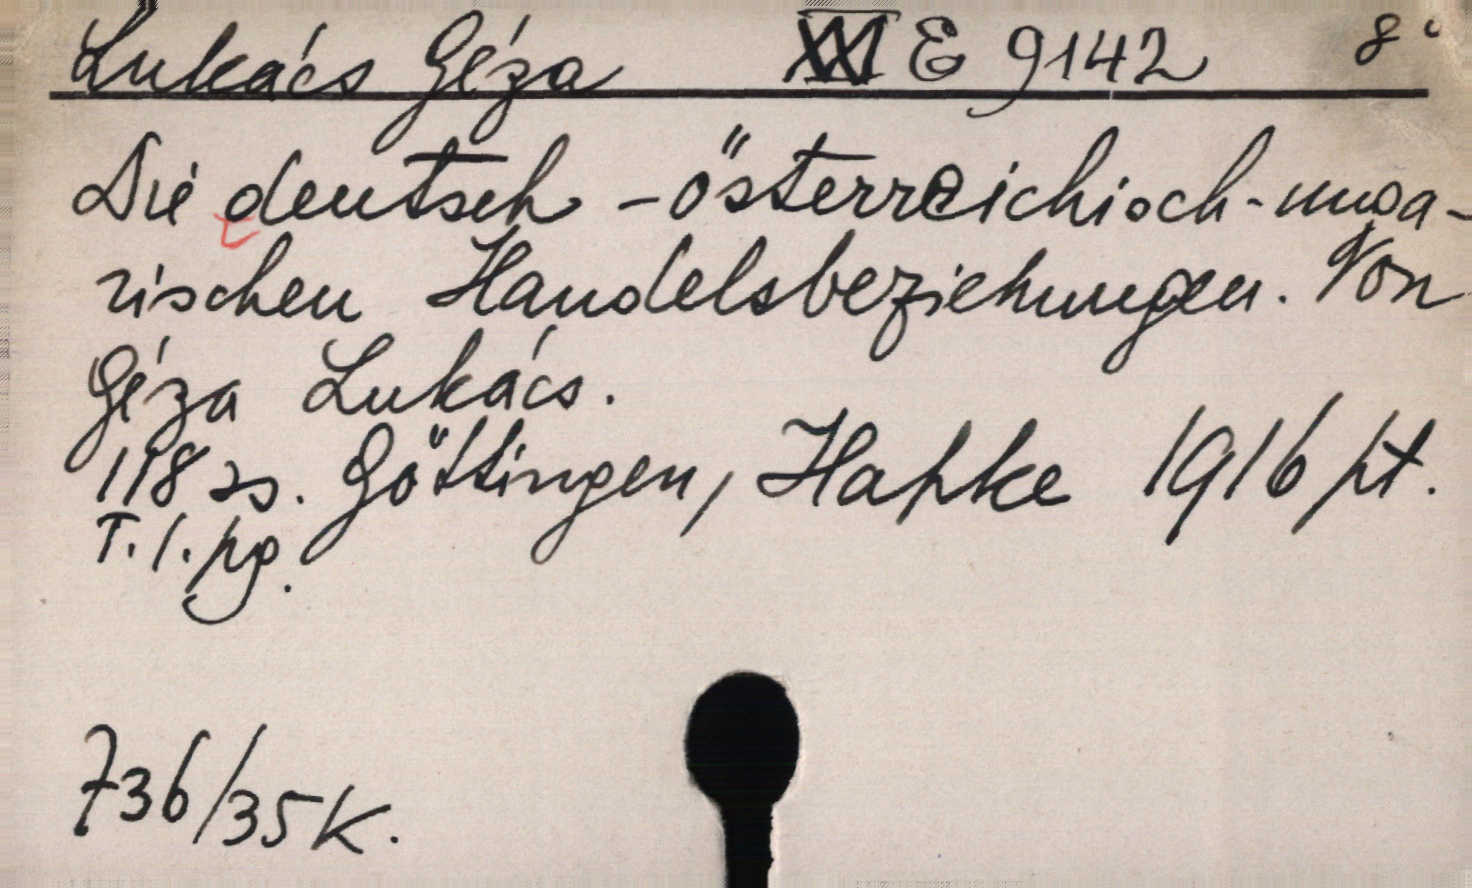 Lukács Géza XXI E 9142 8°
Die deutsch-österreichisch-unga-
rischen Handelsbeziehungen. Von
Géza Lukács.
118 zs. Göttingen, Hapke 1916 pt.
T. l. pg.
736/35K.